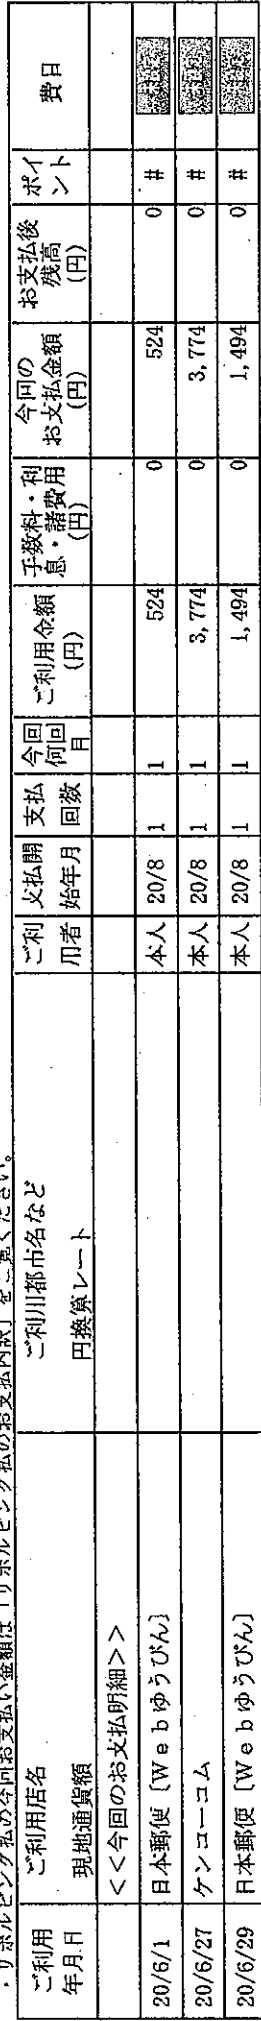 ・リボルビング払の今回お支払い金額は「リボルビング払のお支払内訳」をご覧ください。
ご利用年月日 ご利用店名 現地通貨額 ご利用都市名など 円換算レート ご利用者 支払開始年月 支払回数 今回何回目 ご利用金額(円) 手数料・利息・諸費用(円) 今回のお支払金額(円) お支払後残高(円) ポイント 費目
<<今回のお支払明細>>
20/6/1 日本郵便〔Webゆうびん〕 本人 20/8 1 1 524 0 524 0 #
20/6/27 ケンコーコム 本人 20/8 1 1 3,774 0 3,774 0 #
20/6/29 日本郵便〔Webゆうびん〕 本人 20/8 1 1 1,494 0 1,494 0 #